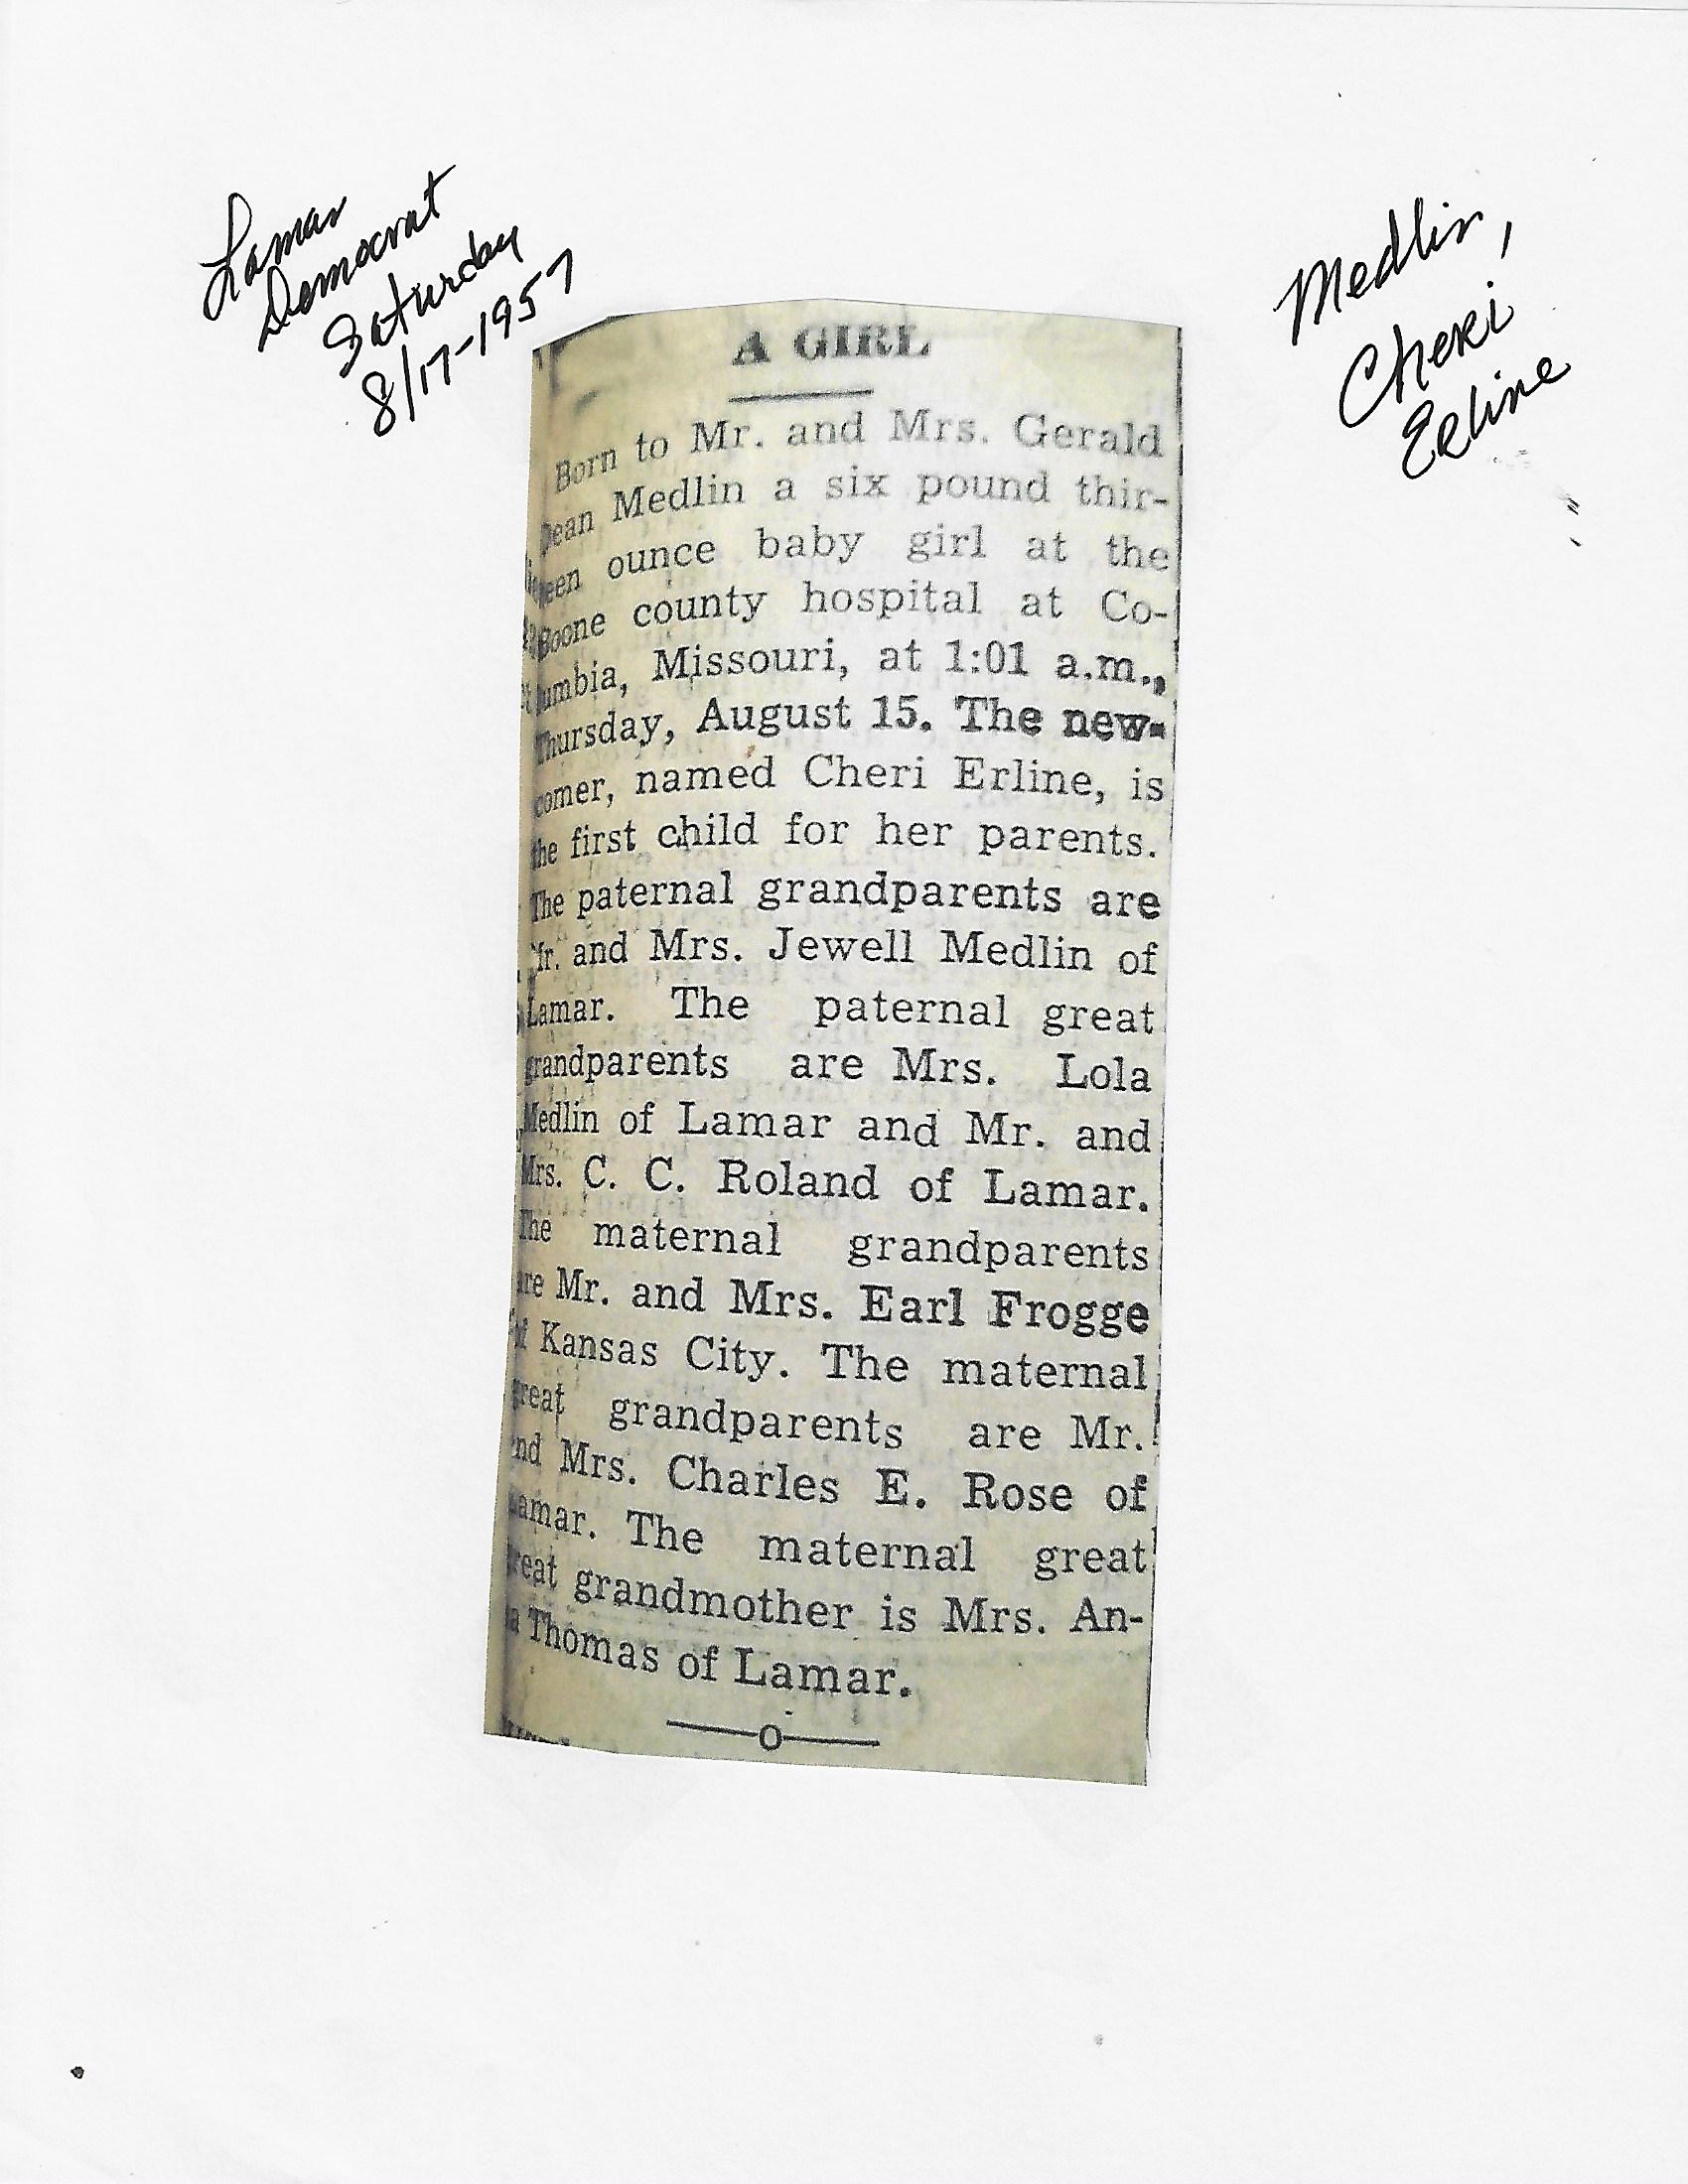 Lamar
Democrat
Saturday
8/17-1957
Medlin,
Cheri
Erline
A GIRL
Born to Mr. and Mrs. Gerald
Dean Medlin a six pound thir-
teen ounce baby girl at the
Boone county hospital at Co-
lumbia, Missouri, at 1:01 a.m.,
Thursday, August 15. The new-
comer, named Cheri Erline, is
the first child for her parents.
The paternal grandparents are
Mr. and Mrs. Jewell Medlin of
Lamar. The paternal great
grandparents are Mrs. Lola
Medlin of Lamar and Mr. and
Mrs. C. C. Roland of Lamar.
The maternal grandparents
are Mr. and Mrs. Earl Frogge
of Kansas City. The maternal
great grandparents are Mr.
and Mrs. Charles E. Rose of
Lamar. The maternal great
great grandmother is Mrs. An-
na Thomas of Lamar.